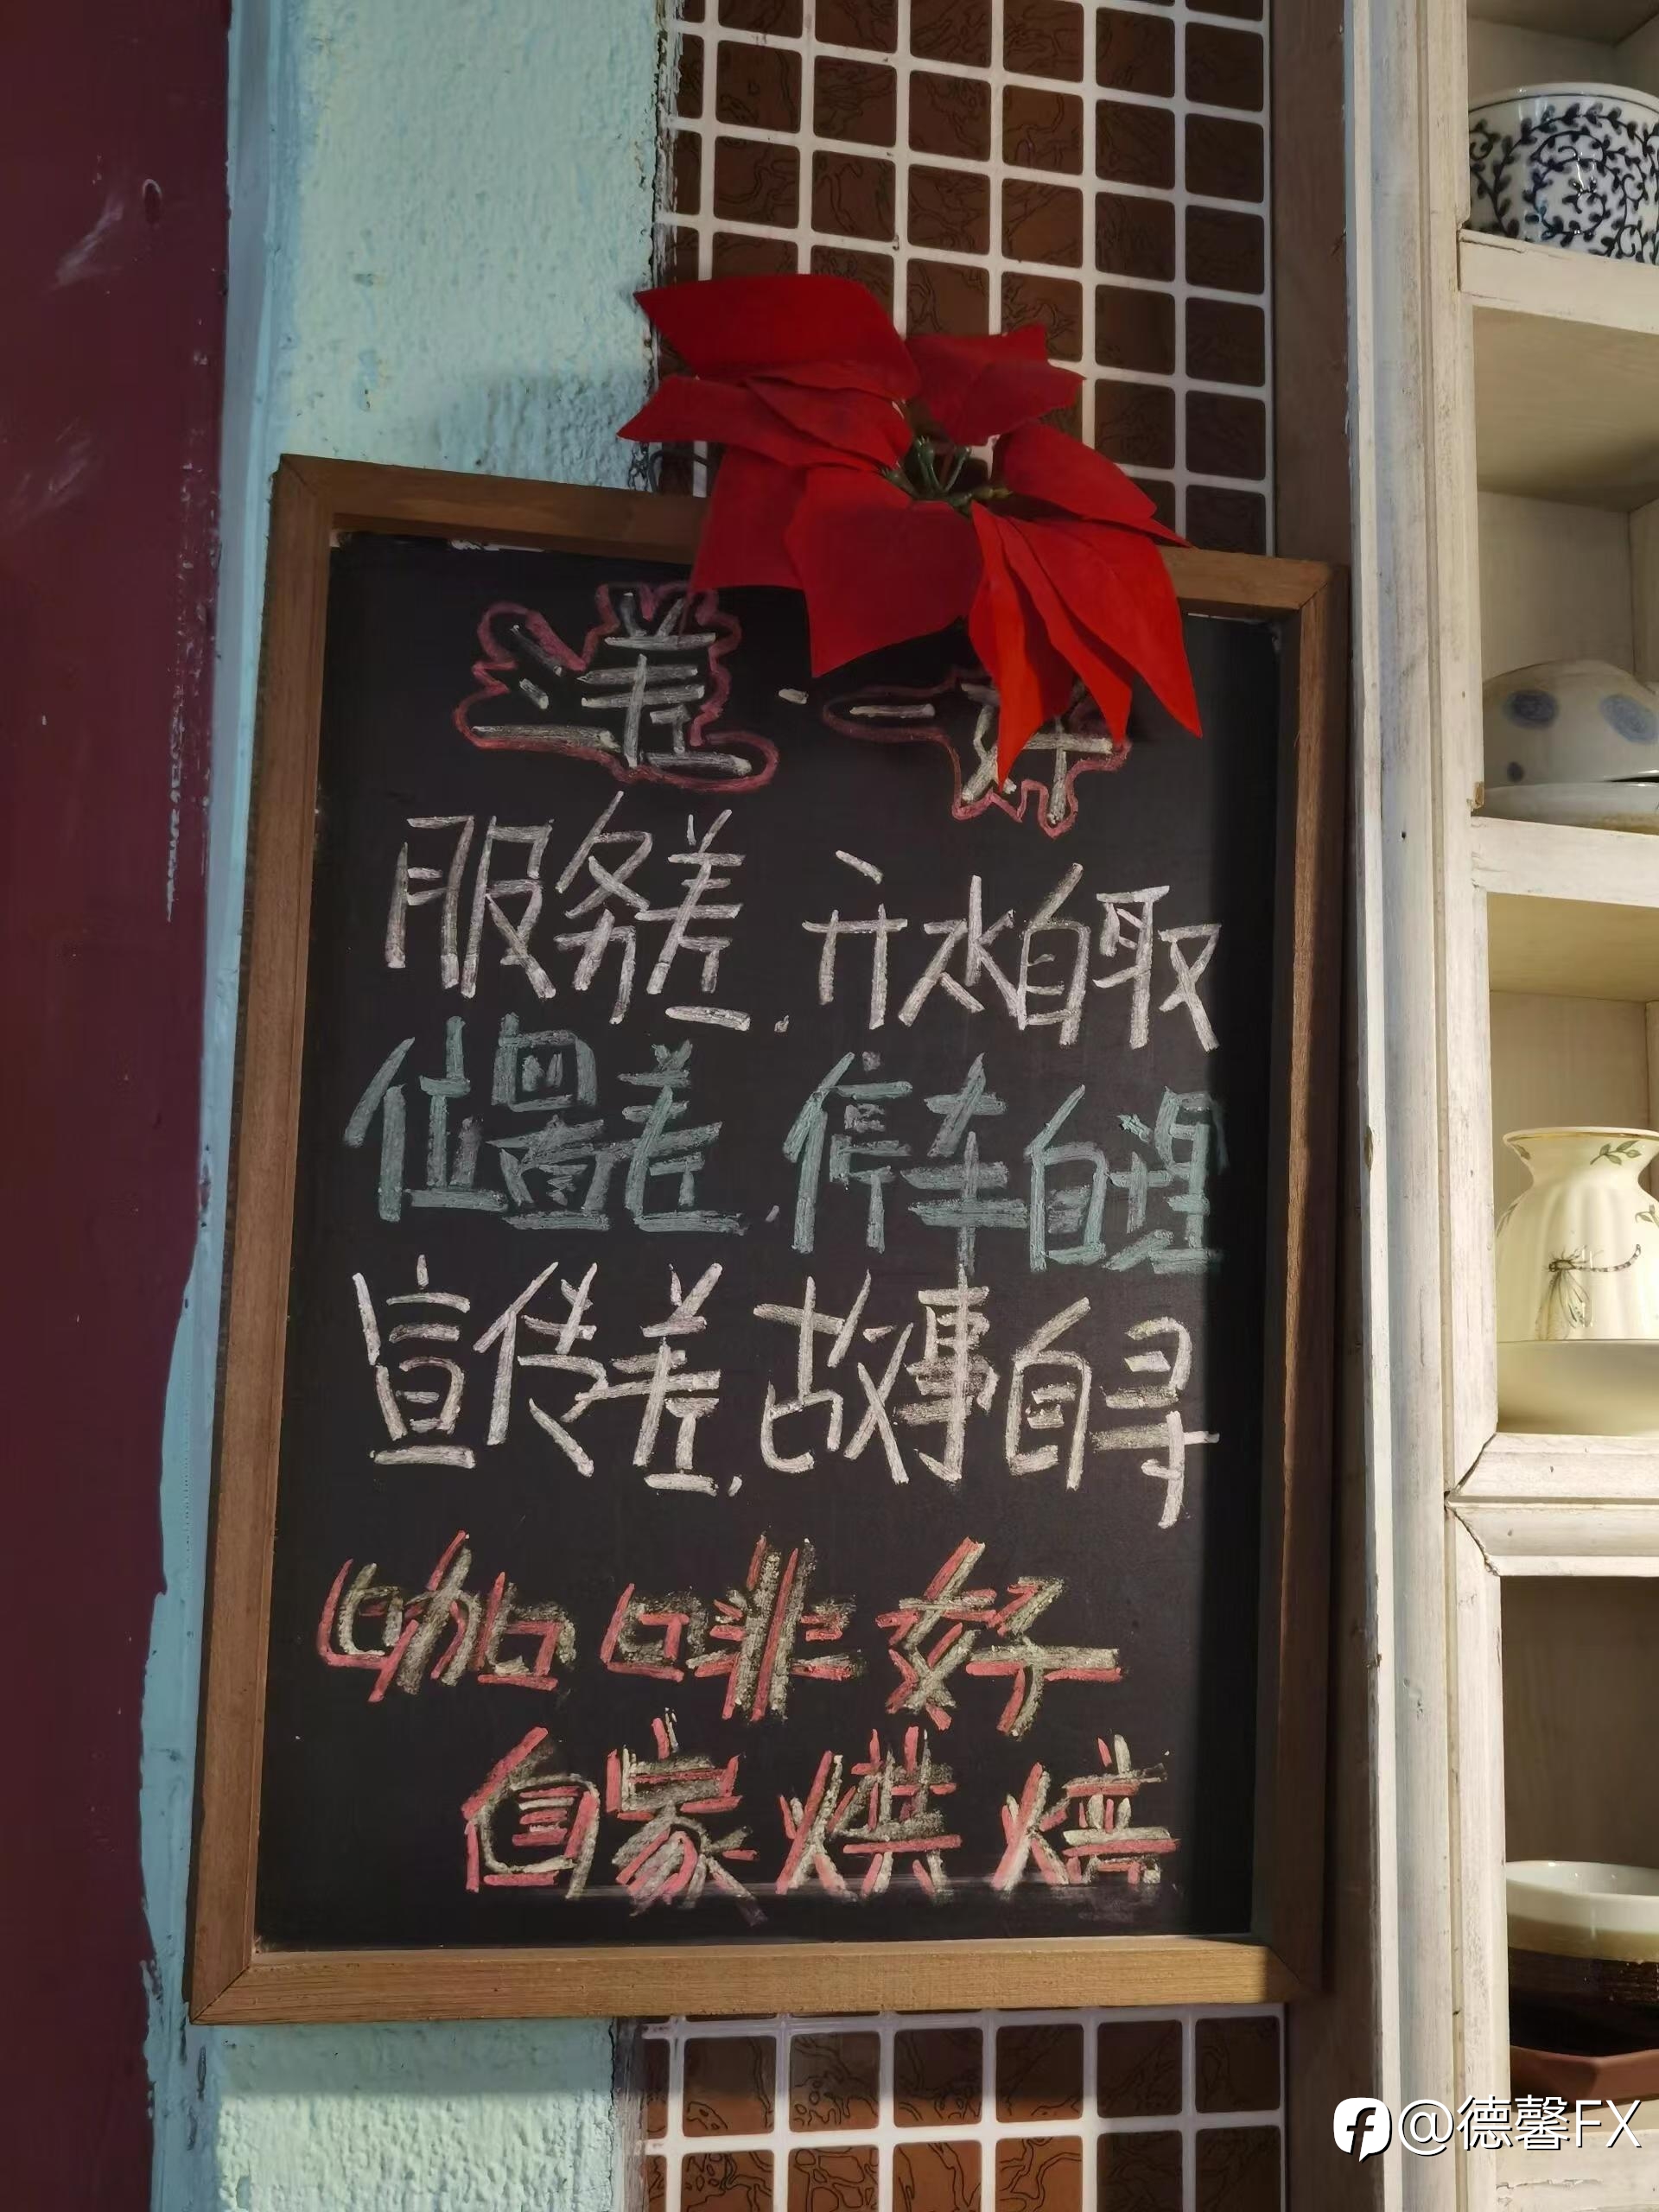 三差·一好
服务差,开水自取
位置差,停车自理
宣传差,故事自寻
咖啡好
自家烘焙
@德馨FX